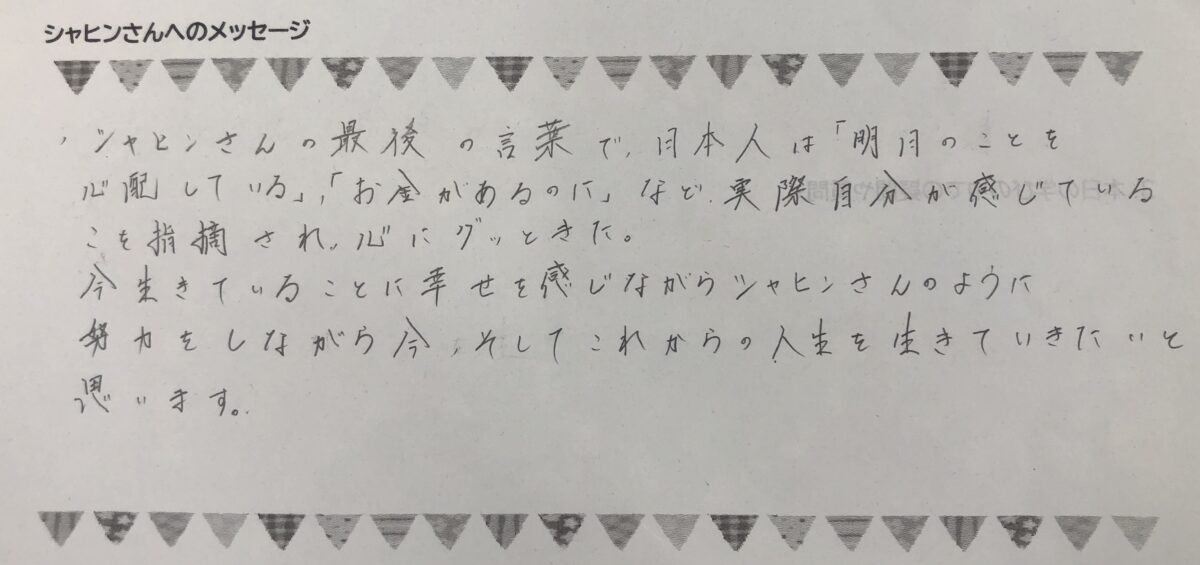 シャヒンさんへのメッセージ
・シャヒンさんの最後の言葉で、日本人は「明日のことを
心配している」,「お金があるのに」など、実際自分が感じている
こを指摘され、心にグッときた。
今生きていることに幸せを感じながらシャヒンさんのように
努力をしながら今、そしてこれからの人生を生きていきたいと
思います。